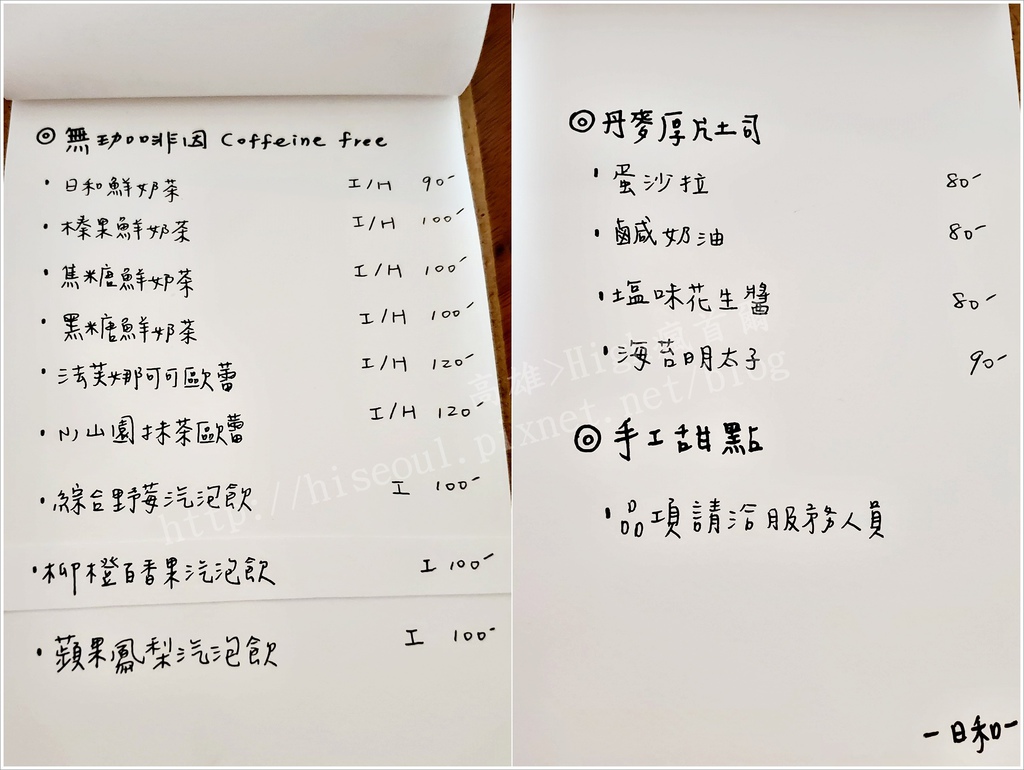 ◎ 無咖啡因 Coffeine free
・日和鮮奶茶 I/H 90-
・榛果鮮奶茶 I/H 100-
・焦糖鮮奶茶 I/H 100-
・黑糖鮮奶茶 I/H 100-
・法芙娜可可歐蕾 I/H 120-
・小山園抹茶歐蕾 I/H 120-
・綜合野莓汽泡飲 I 100-
・柳橙百香果汽泡飲 I 100-
・蘋果鳳梨汽泡飲 I 100-
◎ 丹麥厚片土司
・蛋沙拉 80-
・鹹奶油 80-
・塩味花生醬 80-
・海苔明太子 90-
◎ 手工甜點
・品項請洽服務人員
-日和-
高雄>High瘋首爾
http://hiseoul.pixnet.net/blog